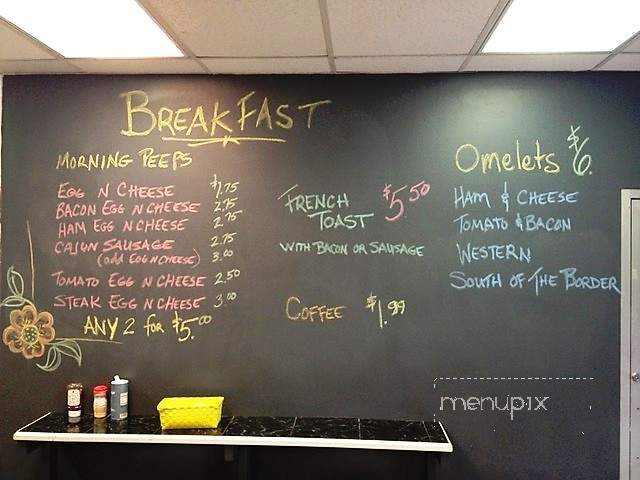 BREAKFAST
MORNING PEEPS
EGG N CHEESE $1.75
BACON EGG N CHEESE 2.75
HAM EGG N CHEESE 2.75
CAJUN SAUSAGE 2.75
(add EGG N CHEESE) 3.00
TOMATO EGG N CHEESE 2.50
STEAK EGG N CHEESE 3.00
ANY 2 for $5.00
FRENCH TOAST $5.50
WITH BACON OR SAUSAGE
COFFEE $1.99
Omelets $6.
HAM & CHEESE
TOMATO & BACON
WESTERN
SOUTH OF THE BORDER
menupix